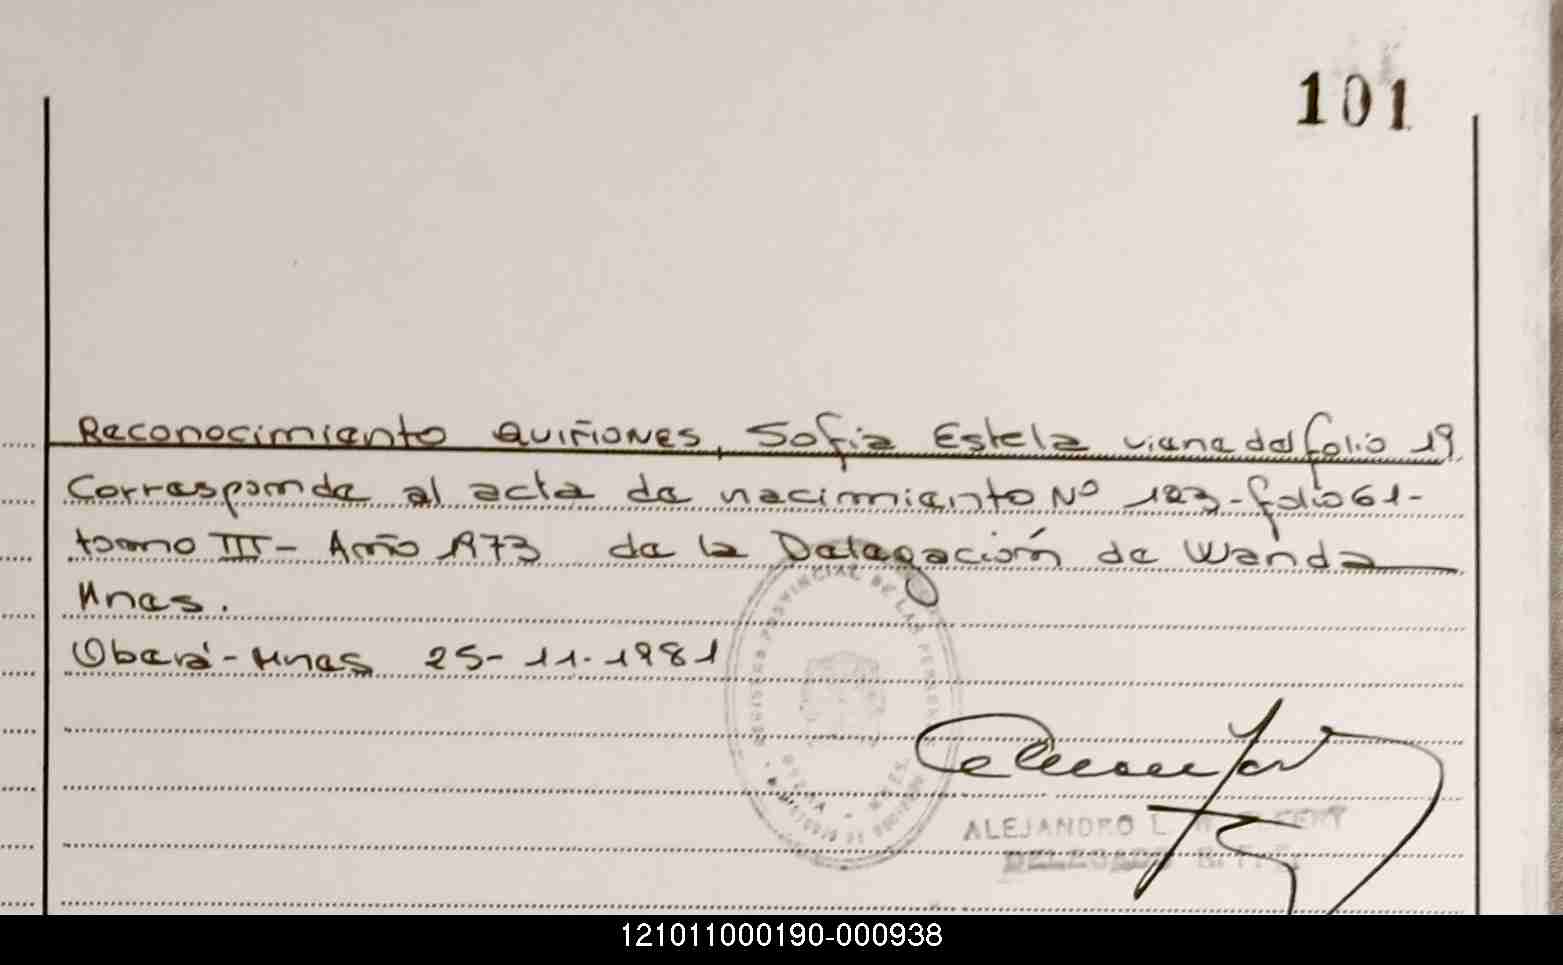 101
Reconocimiento QUIÑONES, Sofia Estela viene del folio 19
Corresponde al acta de nacimiento Nº 123-folio 61-
tomo III- Año 1973 de la Delegación de Wanda
Mnes.
Oberá-Mnes 25-11-1981
REGISTRO PROVINCIAL DE LAS PERSONAS
ALEJANDRO L.
DELEGADO
121011000190-000938